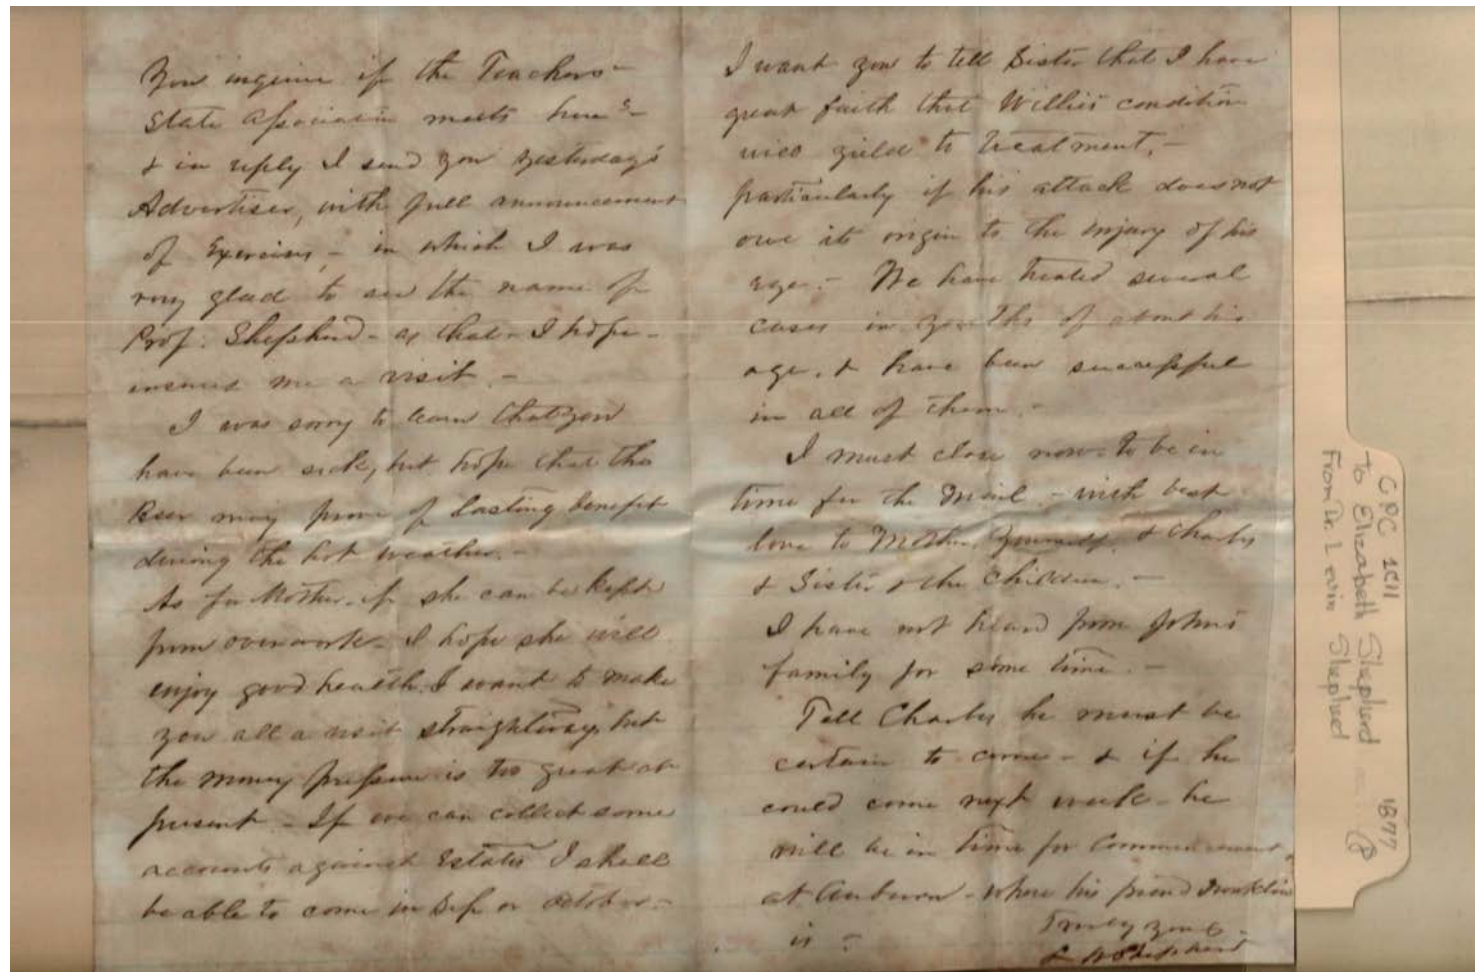 You inquire if the Teachers
State Association meets here? –
& in reply I send you yesterday's
Advertiser, with full announcement
of Exercises, – in which I was
very glad to see the name of
Prof: Shepherd – as that – I hope –
insures me a visit. –
I was sorry to learn that you
have been sick, but hope that the
may prove of lasting benefit
during the hot weather. –
As for Mother – if she can be kept
from overwork – I hope she will
enjoy good health. I want to make
you all a visit straightway, but
the money pressure is too great at
present – If we can collect some
accounts against Estates I shall
be able to come in Sep or October. –
I want you to tell Sister that I have
great faith that Willie's condition
will yield to treatment, –
particularly if his attack does not
owe its origin to the injury of his
eye. – We have treated several
cases in youths of about his
age, & have been successful
in all of them. –
I must close now – to be in
time for the mail – with best
love to Mother, yourself, & Charley
& Sister & the children. –
I have not heard from John's
family for some time. –
Tell Charley he must be
certain to come – & if he
could come next week – he
will be in time for Commencement
at Auburn – where his friend
is –
Truly yours –
Shepherd
CPC 1811 1877
To Elizabeth Shepherd
From Dr. Lewin Shepherd